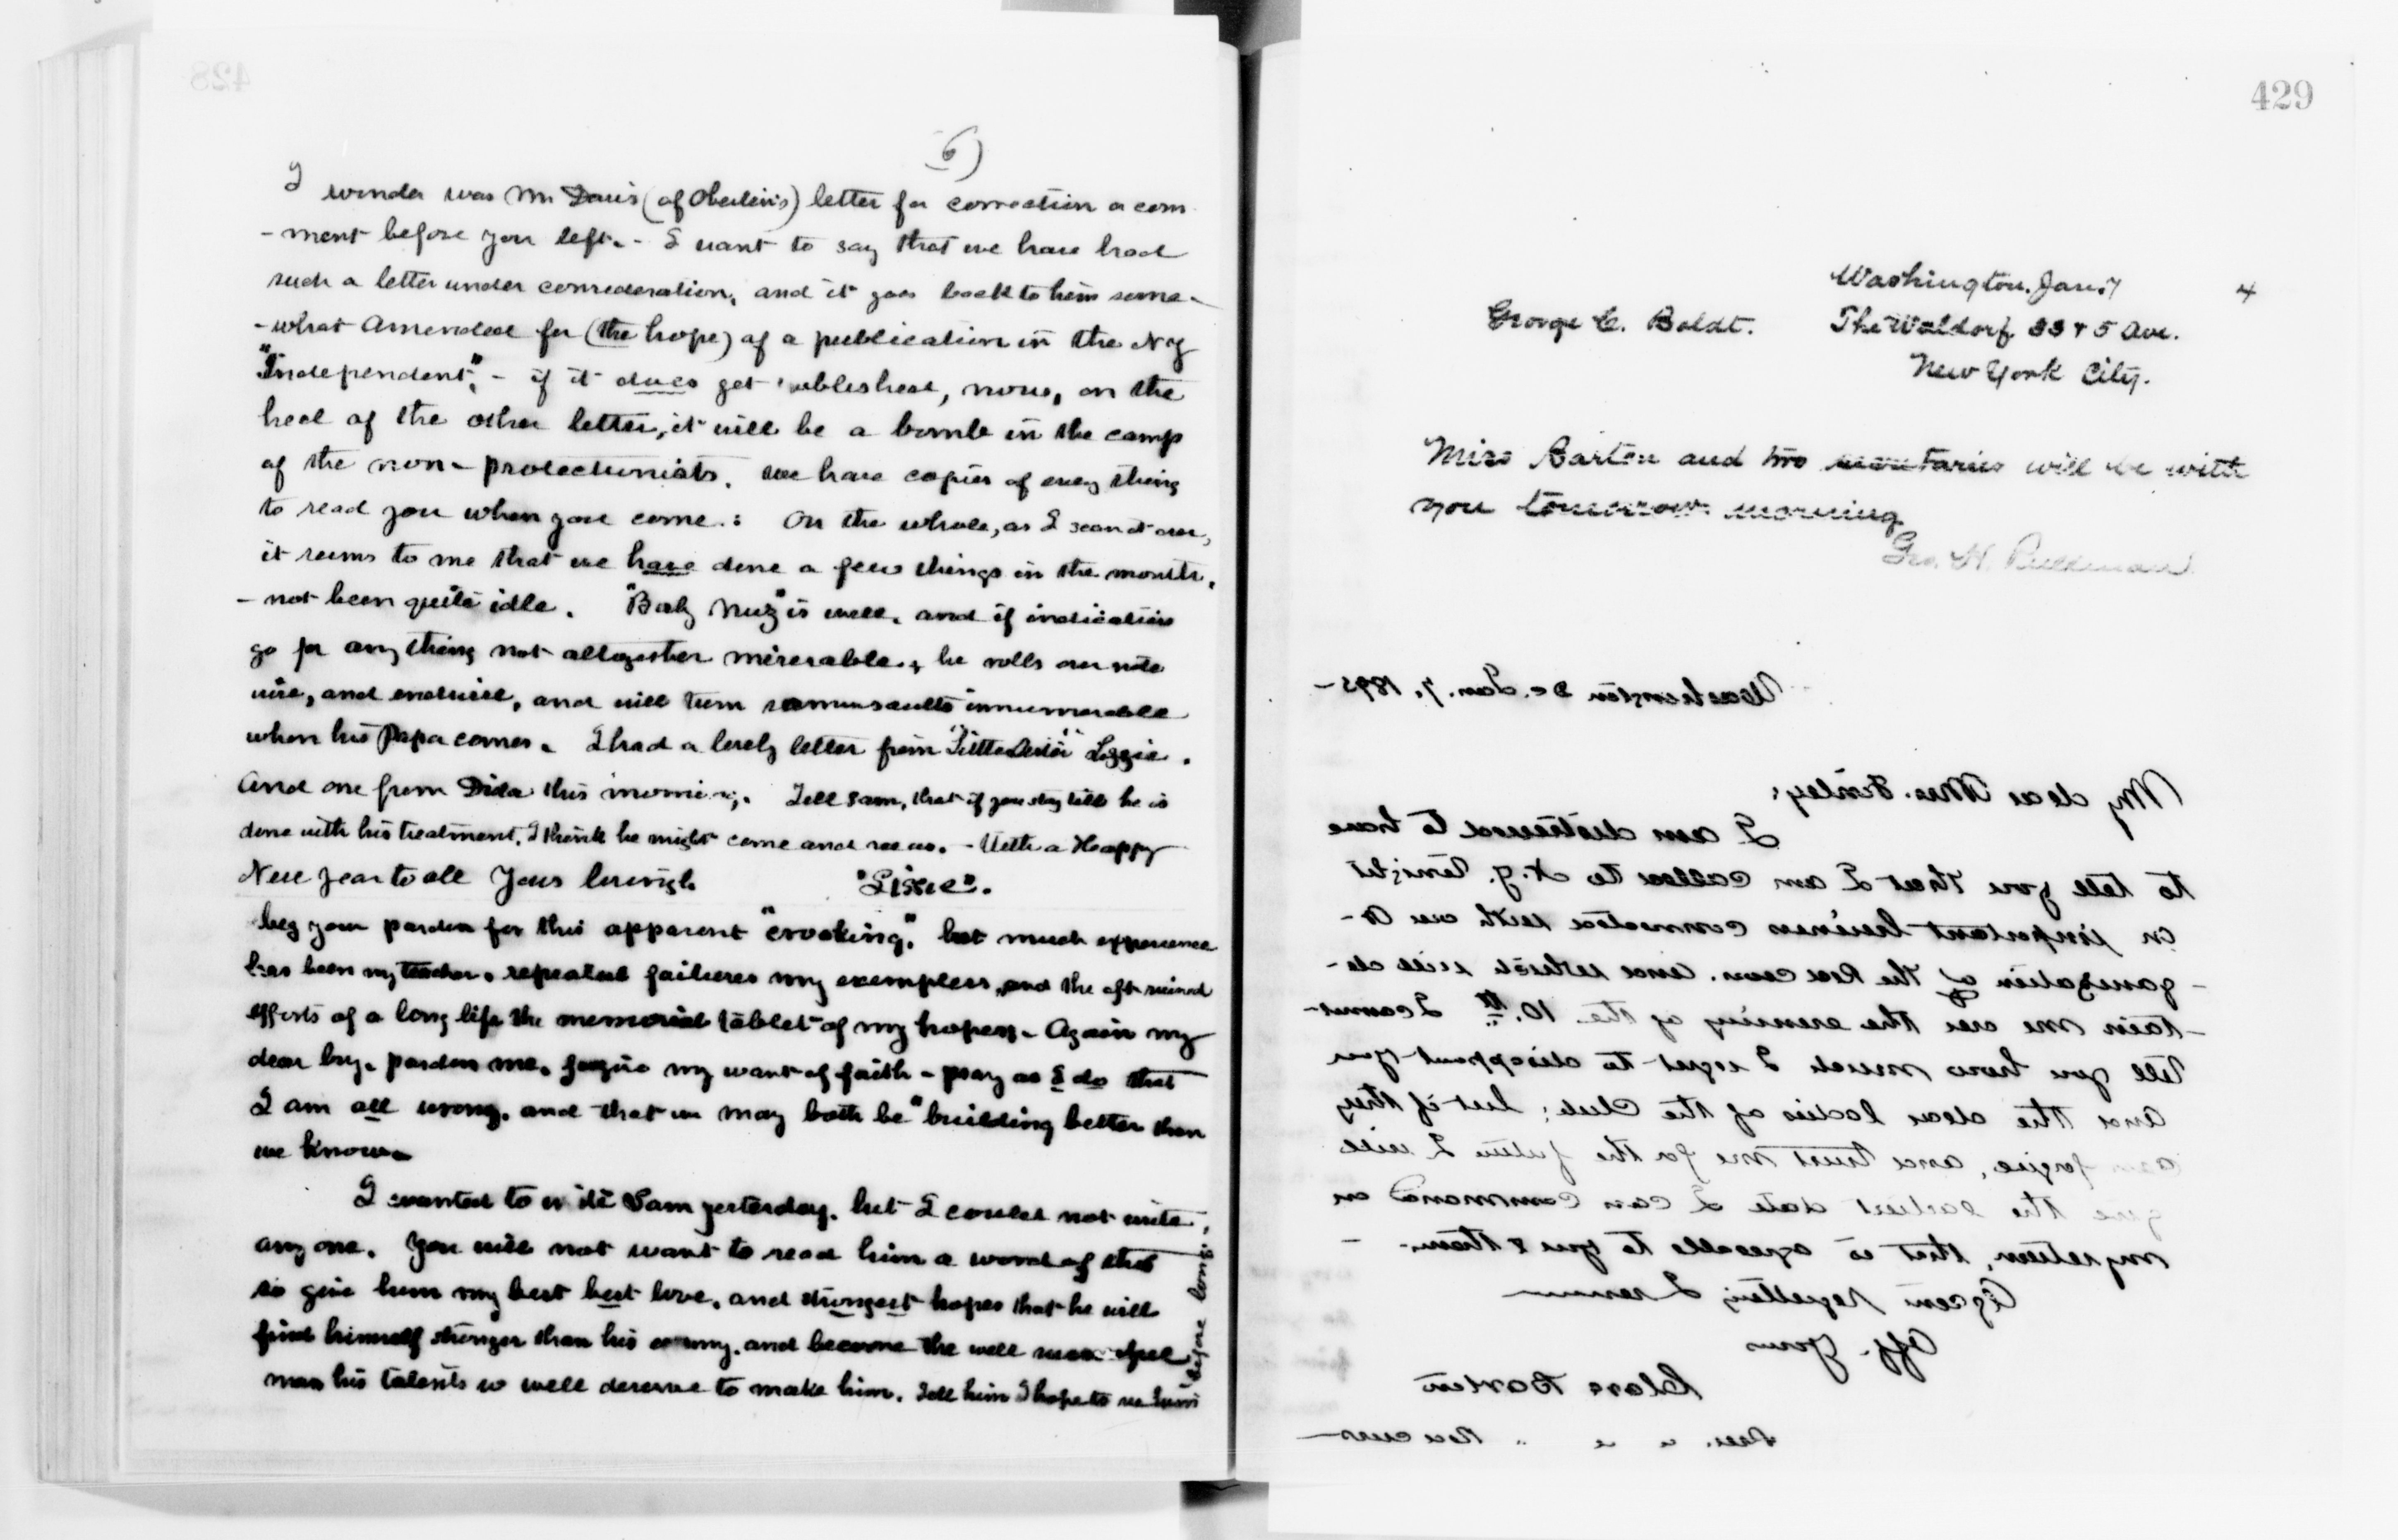 428
6)
I wonder was Mr Davis (of Oberlins) letter for correction or com
- ment before you left. - I want to say that we have had
such a letter under consideration, and it goes back to him some -
- what amended for (the hope) of a publication in the N Y
"Independent", - if it does get published, now, on the
heel of the other letter, it will be a bomb in the camp
of the non - protectionists. We have copies of every thing
to read you when you come. : On the whole, as I scan it over,
it seems to me that we have done a few things in the month,
- not been quite idle. "Baby Nuz" is well, and if indications
go for any thing not altogether miserable, he rolls over
and will turn summersaults innumerable
when his Papa comes. I had a lovely letter from "Little Sister" Lizzie.
And one from Dida this morning. Tell Sam, that if you stay till he is
done with his treatment, I think he might come and see us. - With a Happy
New Year to all Yours lovingly
beg your pardon for this apparent "croaking", but much experience
has been my teacher, repeated failures my exemplers, and the oft ruined
efforts of a long life the memorial tablet of my hopes. - Again my
dear boy, pardon me, forgive my want of faith - pray as I do that
I am all wrong, and that we may both be "building better than
we know.
I wanted to write Sam yesterday, but I could not write
any one. You will not want to read him a word of this
so give him my best best love, and strongest hopes that he will
find himself stronger than his enemy, and become the well man
man his talents so well deserve to make him. Tell him I hope to see him
before long.
429
Washington, Jan. 7
4
George C. Boldt.
The Waldorf 33 & 5 Ave.
New York City.
Miss Barton and two secretaries will be with
you tomorrow morning
Geo. H. Pullman
Washington D C. Jan. 7, 1895 -
My dear Mrs. Finley:
I am distressed to have
to tell you that I am called to N. Y. tonight
on important business connected with our Or -
- ganization of the Red Cross. and which will de -
- tain me over the evening of the 10.th I cannot
tell you how much I regret to disappoint you
and the dear ladies of the Club; but if they
can forgive, and trust me for the future I will
give the earliest date I can command on
my return, that is agreeable to you & them. -
Again regretting I remain
Aff. yours
Clara Barton
Pres. " " " Red Cross -